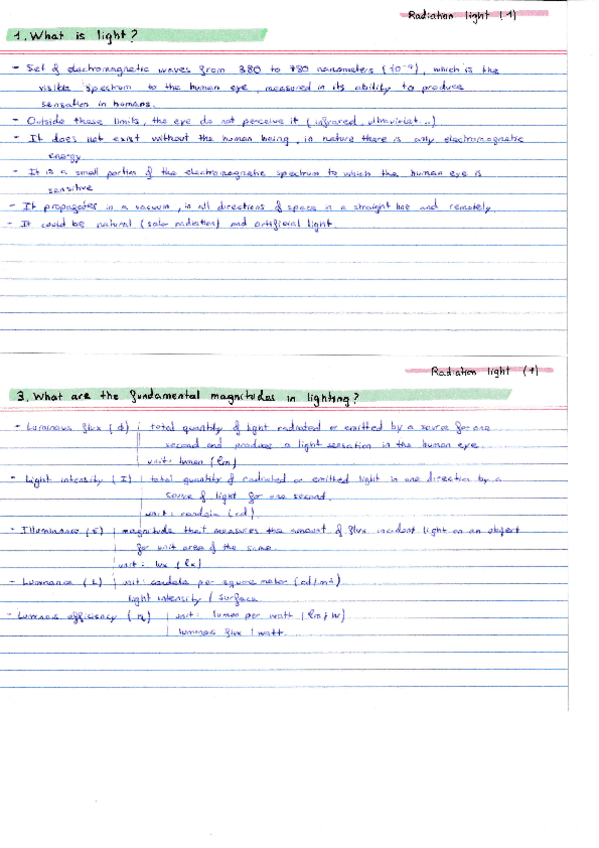 Radiation light (1)
1. What is light?
- Set of electromagnetic waves from 380 to 780 nanometers (10⁻⁹), which is the
visible spectrum to the human eye, measured in its ability to produce
sensation in humans.
- Outside these limits, the eye do not perceive it (infrared, ultraviolet...)
- It does not exist without the human being, in nature there is only electromagnetic
energy
- It is a small portion of the electromagnetic spectrum to which the human eye is
sensitive
- It propagates in a vacuum, in all directions of space in a straight line and remotely.
- It could be natural (solar radiation) and artificial light.
Radiation light (1)
3. What are the fundamental magnitudes in lighting?
- Luminous flux (ϕ) : total quantity of light radiated or emitted by a source for one
second and produce a light sensation in the human eye.
unit: lumen (lm)
- Light intensity (I) total quantity of radiated or emitted light in one direction by a
source of light for one second.
unit: (cd)
- Illuminance (E) magnitude that measures the amount of flux incident light on an object
for unit area of the same.
unit: lux (lx)
- Luminance (L) unit: candela per square meter (cd/m²)
light intensity / surface
- Luminous efficiency (η) unit: lumen per watt (lm/W)
luminous flux / watt.